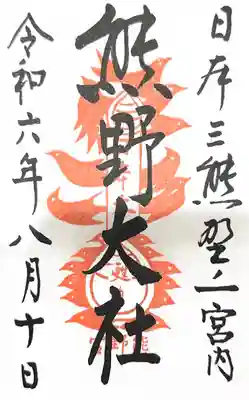 日本三熊野ノ一宮内
熊野大社
令和六年八月十日